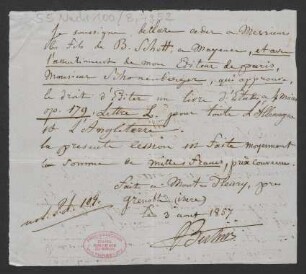 55 Nachl 100/B,
Je soussigné déclare céder à Messieurs
les fils de B. Schott à Mayence, et avec
l'assentiment de mon Editeur de Paris,
Monsieur Schonenberger, qui approuve,
le droit d'Editer un livre d'Etude
op. 179, Lettre L. pour toute l'Allemagne
et l'Angleterre.
la presente Cession est faite moyennant
la Somme de mille Francs, prix convenu.
Fait à Mont Fleury, près
Grenoble (isère)
le 3 aout 1857